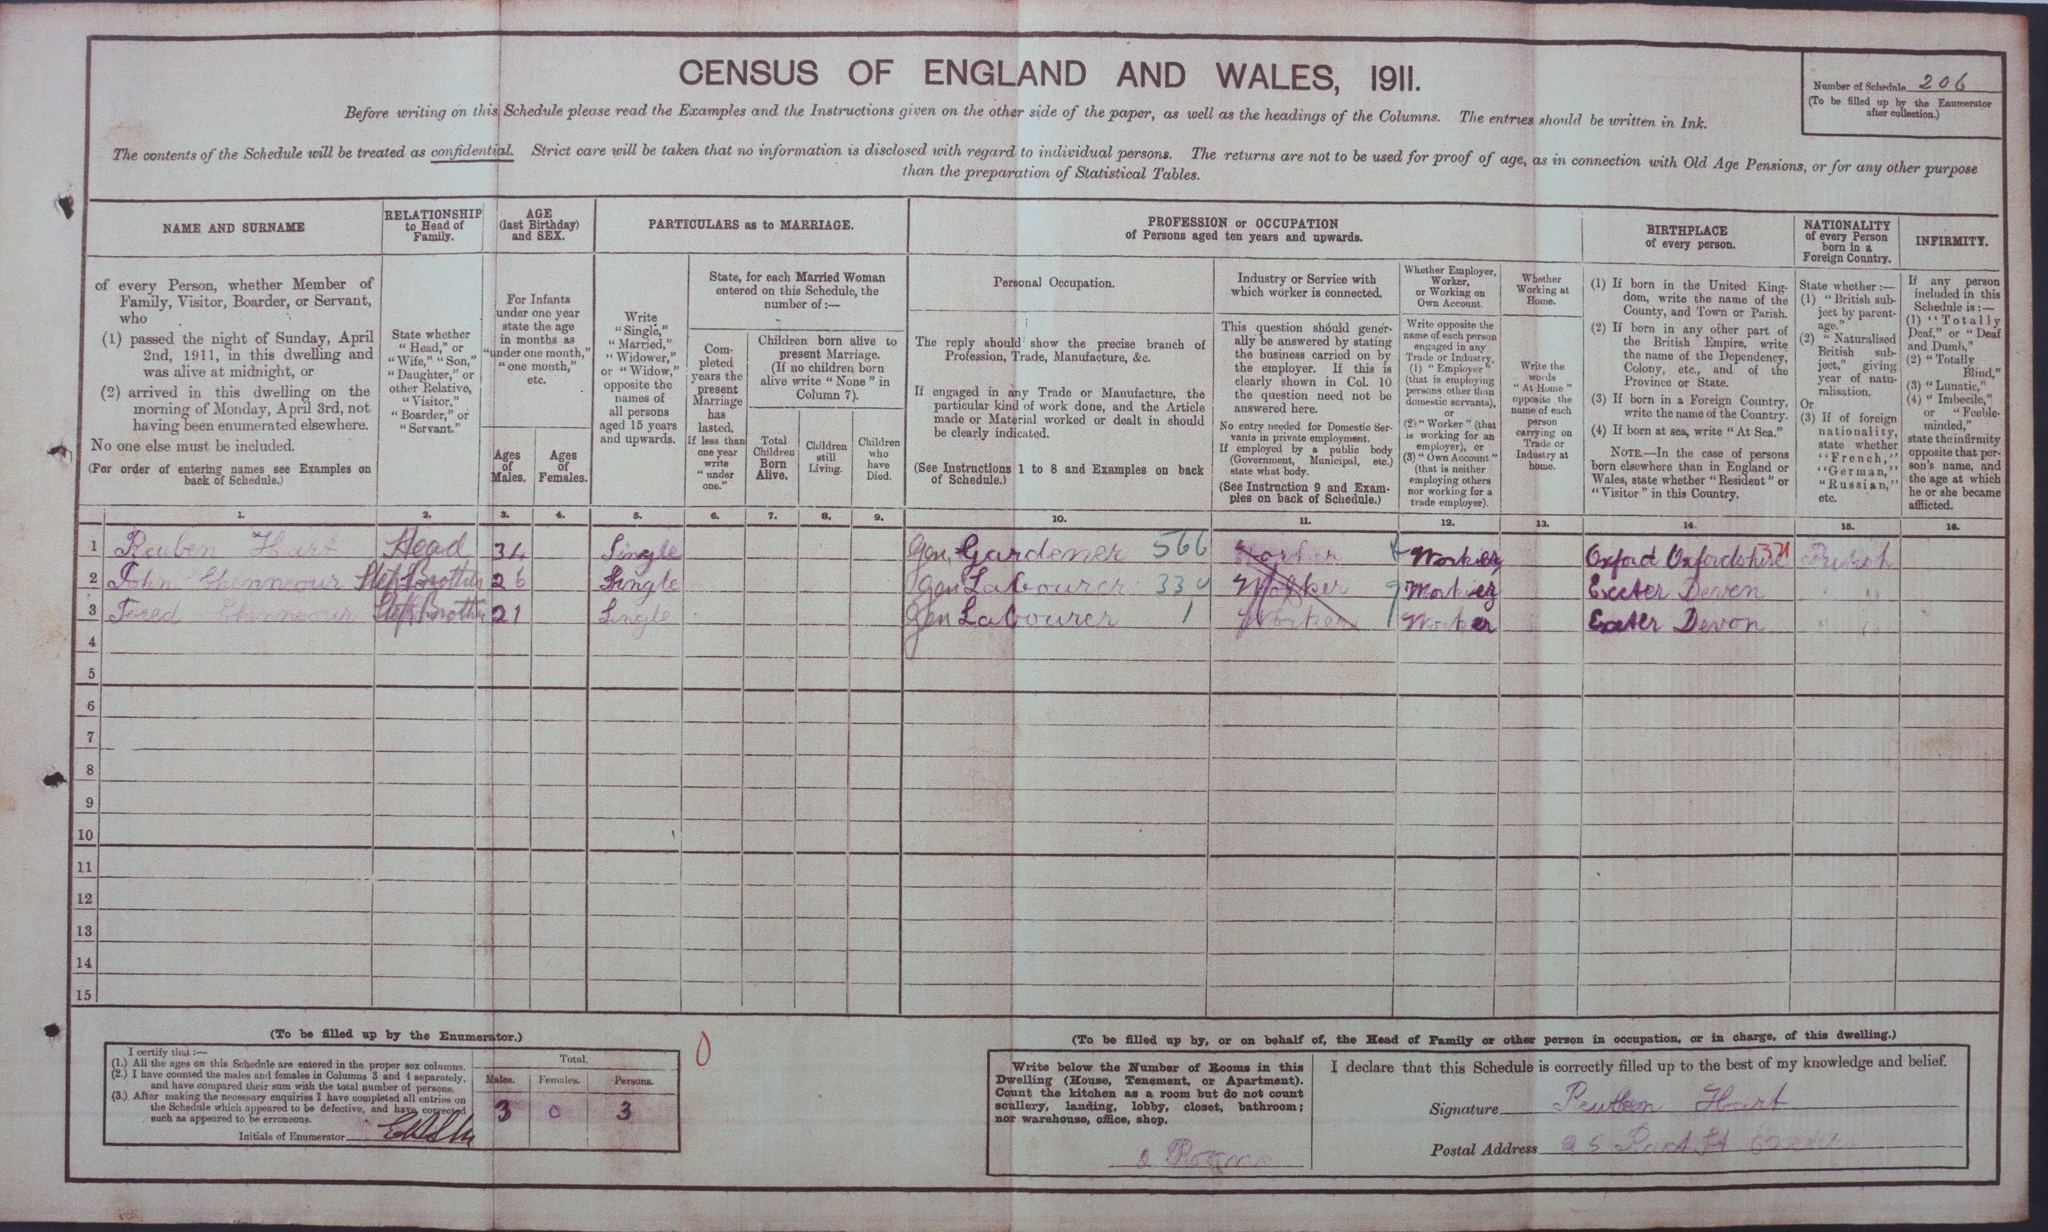 CENSUS OF ENGLAND AND WALES, 1911.
Number of Schedule 206
(To be filled up by the Enumerator after collection.)
Before writing on this Schedule please read the Examples and the Instructions given on the other side of the paper, as well as the headings of the Columns. The entries should be written in Ink.
The contents of the Schedule will be treated as confidential. Strict care will be taken that no information is disclosed with regard to individual persons. The returns are not to be used for proof of age, as in connection with Old Age Pensions, or for any other purpose
than the preparation of Statistical Tables.
NAME AND SURNAME
of every Person, whether Member of
Family, Visitor, Boarder, or Servant,
who
(1) passed the night of Sunday, April
2nd, 1911, in this dwelling and
was alive at midnight, or
(2) arrived in this dwelling on the
morning of Monday, April 3rd, not
having been enumerated elsewhere.
No one else must be included.
(For order of entering names see Examples on
back of Schedule.)
RELATIONSHIP
to Head of
Family.
State whether
"Head," or
"Wife," "Son,"
"Daughter," or
other Relative,
"Visitor,"
"Boarder," or
"Servant."
AGE
(last Birthday)
and SEX.
For Infants
under one year
state the age
in months as
"under one month,"
"one month,"
etc.
Ages
of
Males.
Ages
of
Females.
PARTICULARS as to MARRIAGE.
Write
"Single,"
"Married,"
"Widower,"
or "Widow,"
opposite the
names of
all persons
aged 15 years
and upwards.
State, for each Married Woman
entered on this Schedule, the
number of:—
Com-
pleted
years the
present
Marriage
has
lasted.
If less than
one year
write
"under
one."
Children born alive to
present Marriage.
(If no children born
alive write "None" in
Column 7).
Total
Children
Born
Alive.
Children
still
Living.
Children
who
have
Died.
PROFESSION or OCCUPATION
of Persons aged ten years and upwards.
Personal Occupation.
The reply should show the precise branch of
Profession, Trade, Manufacture, &c.
If engaged in any Trade or Manufacture, the
particular kind of work done, and the Article
made or Material worked or dealt in should
be clearly indicated.
(See Instructions 1 to 8 and Examples on back
of Schedule.)
Industry or Service with
which worker is connected.
This question should gener-
ally be answered by stating
the business carried on by
the employer. If this is
clearly shown in Col. 10
the question need not be
answered here.
No entry needed for Domestic Ser-
vants in private employment.
If employed by a public body
(Government, Municipal, etc.)
state what body.
(See Instruction 9 and Exam-
ples on back of Schedule.)
Whether Employer,
Worker,
or Working on
Own Account.
Write opposite the
name of each person
engaged in any
Trade or Industry,
(1) "Employer"
(that is employing
persons other than
domestic servants),
or
(2) "Worker" (that
is working for an
employer), or
(3) "Own Account"
(that is neither
employing others
nor working for a
trade employer).
Whether
Working at
Home.
Write the
words
"At Home"
opposite the
name of each
person
carrying on
Trade or
Industry at
home.
BIRTHPLACE
of every person.
(1) If born in the United King-
dom, write the name of the
County, and Town or Parish.
(2) If born in any other part of
the British Empire, write
the name of the Dependency,
Colony, etc., and of the
Province or State.
(3) If born in a Foreign Country,
write the name of the Country.
(4) If born at sea, write "At Sea."
NOTE.—In the case of persons
born elsewhere than in England or
Wales, state whether "Resident" or
"Visitor" in this Country.
NATIONALITY
of every Person
born in a
Foreign Country.
State whether:—
(1) "British sub-
ject by parent-
age."
(2) "Naturalised
British sub-
ject," giving
year of natu-
ralisation.
Or
(3) If of foreign
nationality,
state whether
"French,"
"German,"
"Russian,"
etc.
INFIRMITY.
If any person
included in this
Schedule is:—
(1) "Totally
Deaf," or "Deaf
and Dumb,"
(2) "Totally
Blind,"
(3) "Lunatic,"
(4) "Imbecile,"
or "Feeble-
minded,"
state the infirmity
opposite that per-
son's name, and
the age at which
he or she became
afflicted.
1. 2. 3. 4. 5. 6. 7. 8. 9. 10. 11. 12. 13. 14. 15. 16.
1 Reuben Hart Head 34 Single Gen. Gardener 566 Worker Worker Oxford Oxfordshire 371 British
2 John Chenneour Step Brother 26 Single Gen Labourer Worker Worker Exeter Devon " "
3 Fred Chenneour Step Brother 21 Single Gen Labourer Worker Worker Exeter Devon " "
4
5
6
7
8
9
10
11
12
13
14
15
(To be filled up by the Enumerator.)
I certify that:—
(1.) All the ages on this Schedule are entered in the proper sex columns.
(2.) I have counted the males and females in Columns 3 and 4 separately,
and have compared their sum with the total number of persons.
(3.) After making the necessary enquiries I have completed all entries on
the Schedule which appeared to be defective, and have corrected
such as appeared to be erroneous.
Initials of Enumerator
Total.
Males. Females. Persons.
3 0 3
0
(To be filled up by, or on behalf of, the Head of Family or other person in occupation, or in charge, of this dwelling.)
Write below the Number of Rooms in this
Dwelling (House, Tenement, or Apartment).
Count the kitchen as a room but do not count
scullery, landing, lobby, closet, bathroom;
nor warehouse, office, shop.
2 Rooms
I declare that this Schedule is correctly filled up to the best of my knowledge and belief.
Signature Reuben Hart
Postal Address St Exeter